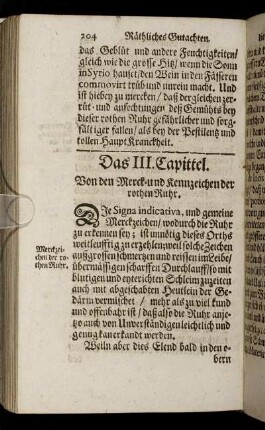 204 Räthliches Gutachten.
das Geblüt und andere Feuchtigkeiten/
gleich wie die grosse Hitz/ wenn die Sonn
in Syrio hauset/ den Wein in den Fässeren
commovirt trüb und unrein macht. Und
ist hiebey zu mercken/ daß dergleichen zer-
rüt- und anfechtungen deß Gemühts bey
dieser rothen Ruhr gefährlicher und sorg-
fältiger fallen/ als bey der Pestilentz und
tollen Haupt Kranckheit.
Das III. Capittel.
Von den Merck- und Kennzeichen der
rothen Ruhr.
DJe Signa indicativa, und gemeine
Merckzeichen/ wodurch die Ruhr
zu erkennen sey; ist unnötig dieses Orths
weitleufftig zu erzehlen; weil solche Zeichen
auß grossen schmerzen und reissen im Leibe/
übermässigen scharffen Durchlauff/ so mit
blutigen und eyterichten Schleim zuzeiten
auch mit abgeschabten Heutlein der Ge-
därm vermischet / mehr als zu viel kund
und offenbahr ist/ daß also die Ruhr anje-
tzo auch von Unverständigen leichtlich und
genug kan erkandt werden.
Weiln aber dies Elend bald in den o-
bern
Merckzei-
chen der ro-
then Ruhr.